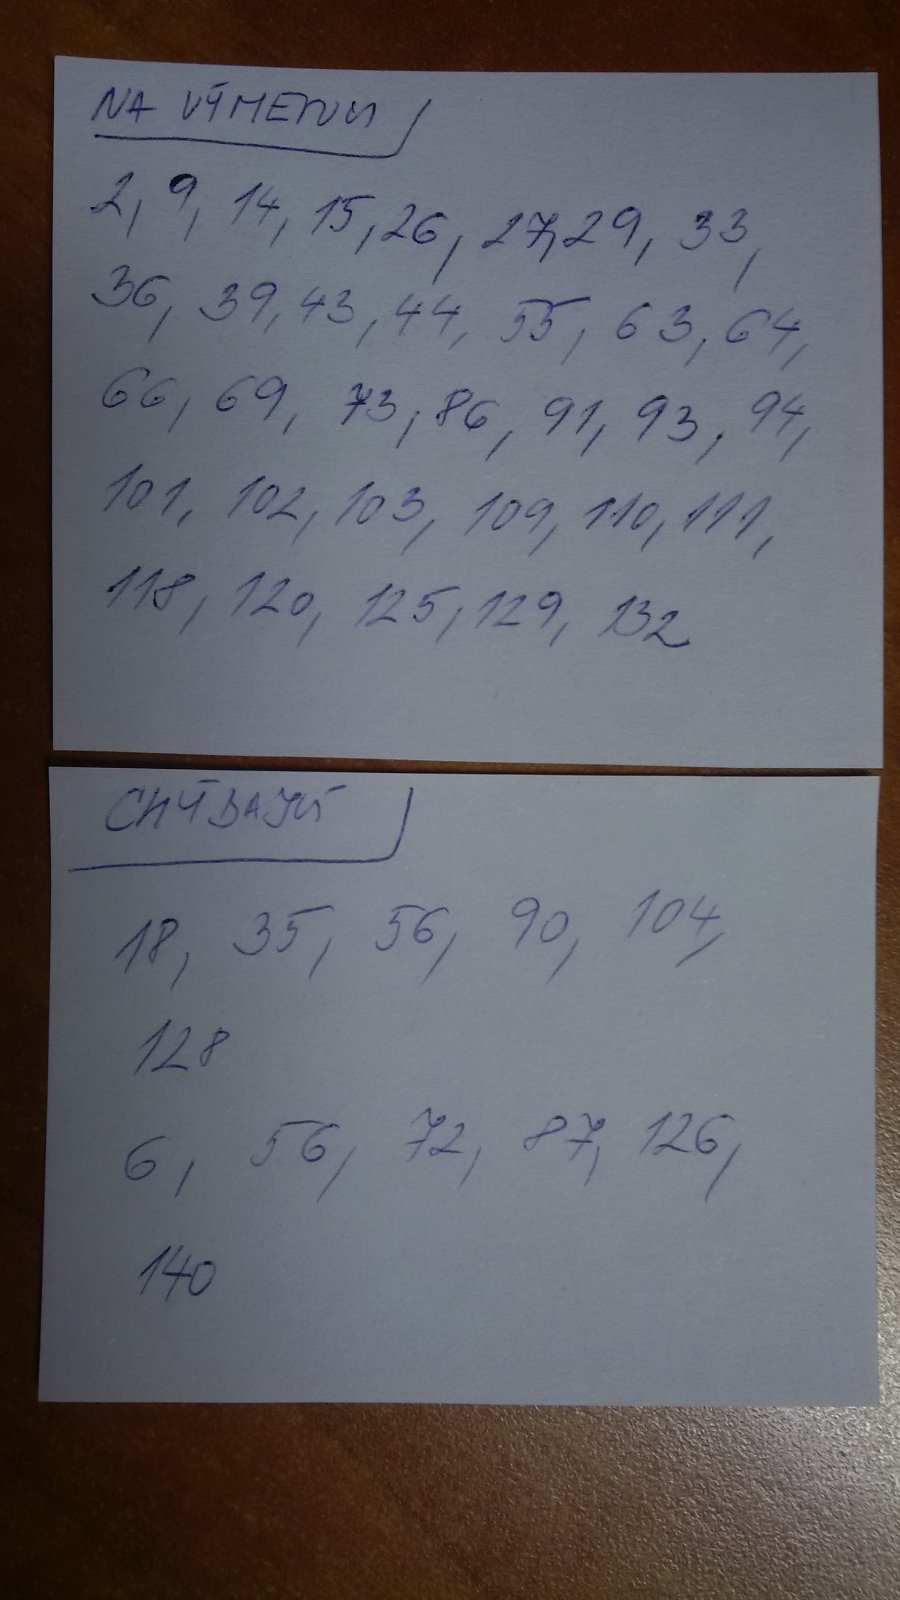 NA VÝMENU
2, 9, 14, 15, 26, 27, 29, 33,
36, 39, 43, 44, 55, 63, 64,
66, 69, 73, 86, 91, 93, 94,
101, 102, 103, 109, 110, 111,
118, 120, 125, 129, 132
CHÝBAJÚ
18, 35, 56, 90, 104,
128
6, 56, 72, 87, 126,
140